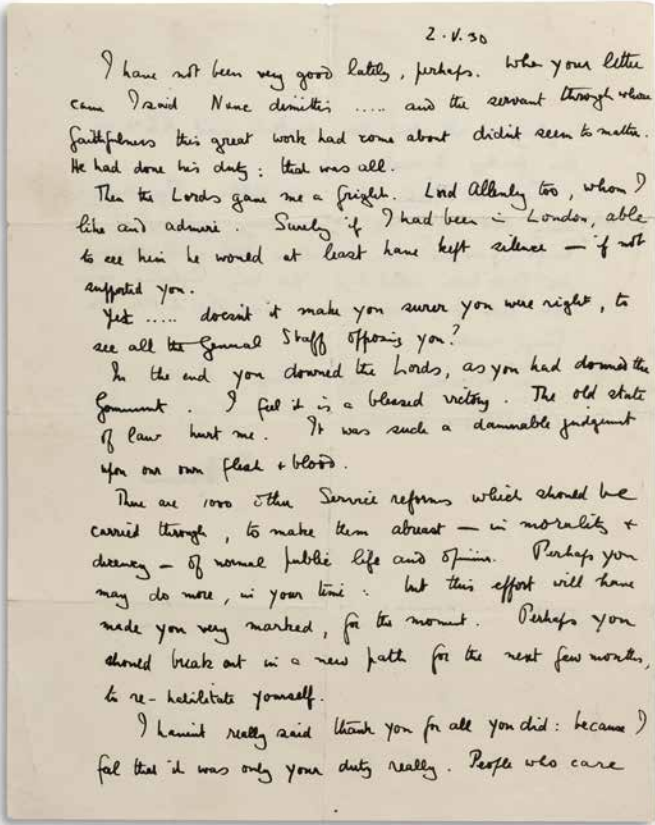 2.V.30
I have not been very good lately, perhaps. When your letter
came I said Nunc dimittis ..... and the servant through whose
faithfulness this great work had come about didn't seem to matter.
He had done his duty: that was all.
Then the Lords gave me a fright. Lord Allenby too, whom I
like and admire. Surely if I had been in London, able
to see him he would at least have kept silence — if not
supported you.
Yet ..... doesn't it make you surer you were right, to
see all the General Staff opposing you?
In the end you downed the Lords, as you had downed the
Government. I feel it is a blessed victory. The old state
of law hurt me. It was such a damnable judgment
upon our own flesh + blood.
There are 1000 other Service reforms which should be
carried through, to make them abreast — in morality +
decency — of normal public life and opinion. Perhaps you
may do more, in your time: but this effort will have
made you very marked, for the moment. Perhaps you
should break out in a new path for the next few months,
to re-habilitate yourself.
I haven't really said thank you for all you did: because I
feel that it was only your duty really. People who care